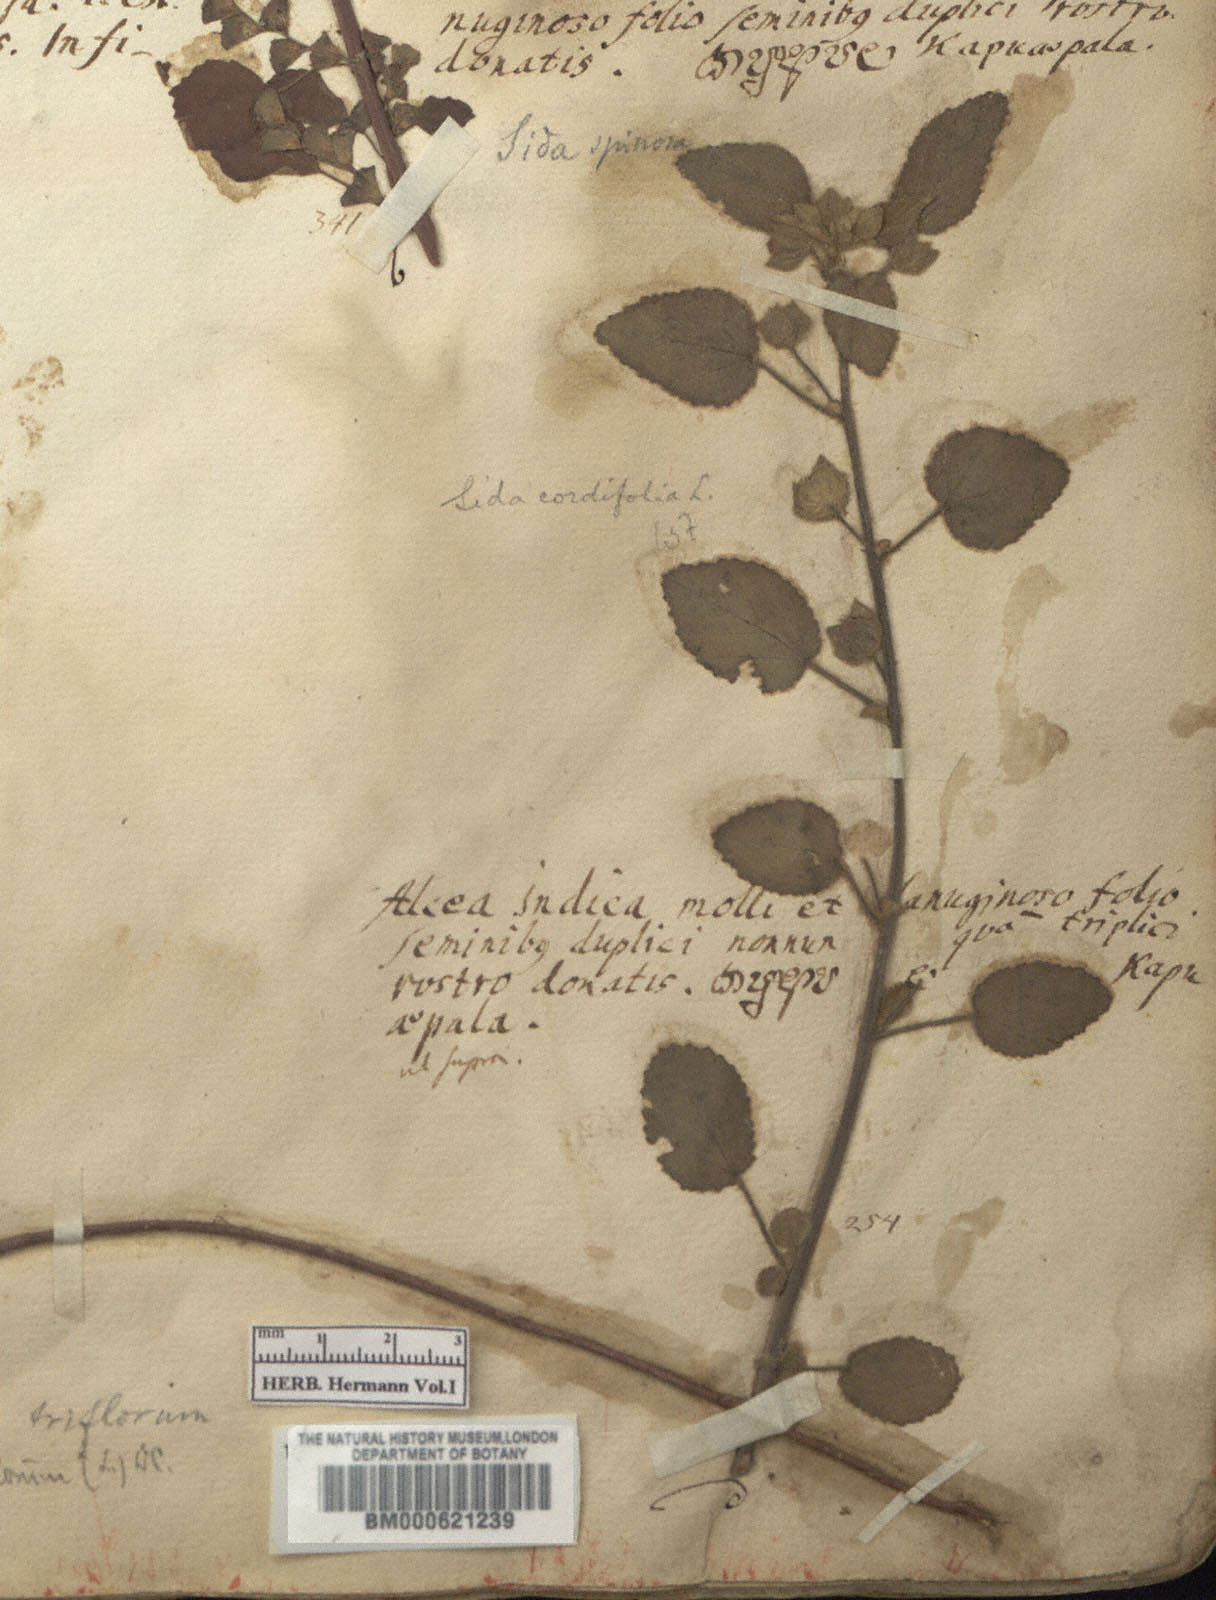 s. Infi-
nuginoso folio seminibq duplici rostro.
donatis. Kapuæpala.
Sida spinosa
341
Sida cordifolia L.
137
Alcea indica molli et lanuginoso folio
seminibq duplici nonnun quā triplici
rostro donatis. Kapu
æpala.
ut supra.
254
mm 1 2 3
HERB. Hermann Vol.I
triflorum
(L.) DC.
THE NATURAL HISTORY MUSEUM, LONDON
DEPARTMENT OF BOTANY
BM000621239